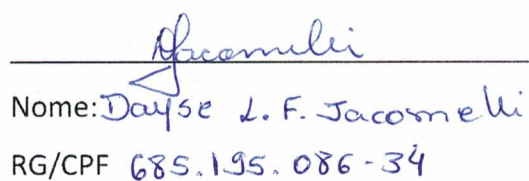 DJacomelli
Nome: Dayse L. F. Jacomelli
RG/CPF 685.195.086-34